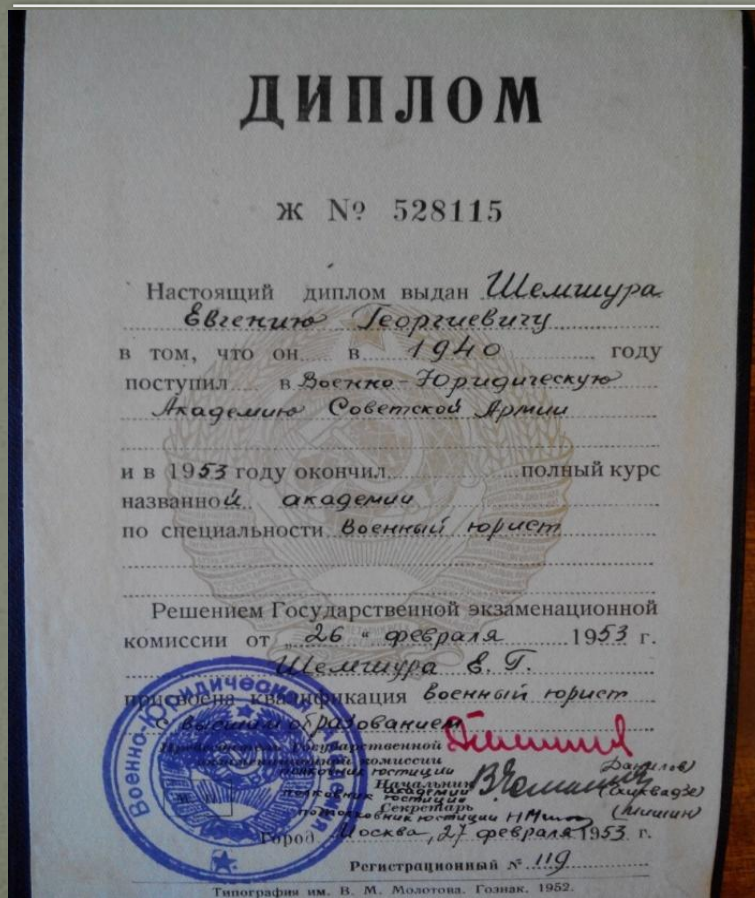 ДИПЛОМ
Ж № 528115
Настоящий диплом выдан Шемшура
Евгению Георгиевичу
в том, что он в 1940 году
поступил в Военно-Юридическую
Академию Советской Армии
и в 1953 году окончил полный курс
названной академии
по специальности военный юрист
Решением Государственной экзаменационной
комиссии от "26" февраля 1953 г.
Шемшура Е. Г.
присвоена квалификация военный юрист
с высшим образованием
Председатель Государственной
экзаменационной комиссии
полковник юстиции Данилов)
Начальник Академии
полковник юстиции
Секретарь (Мишин)
подполковник юстиции
Город Москва, 27 февраля 1953 г.
Регистрационный № 119
Типография им. В. М. Молотова. Гознак. 1952.
Военно-Юридическая